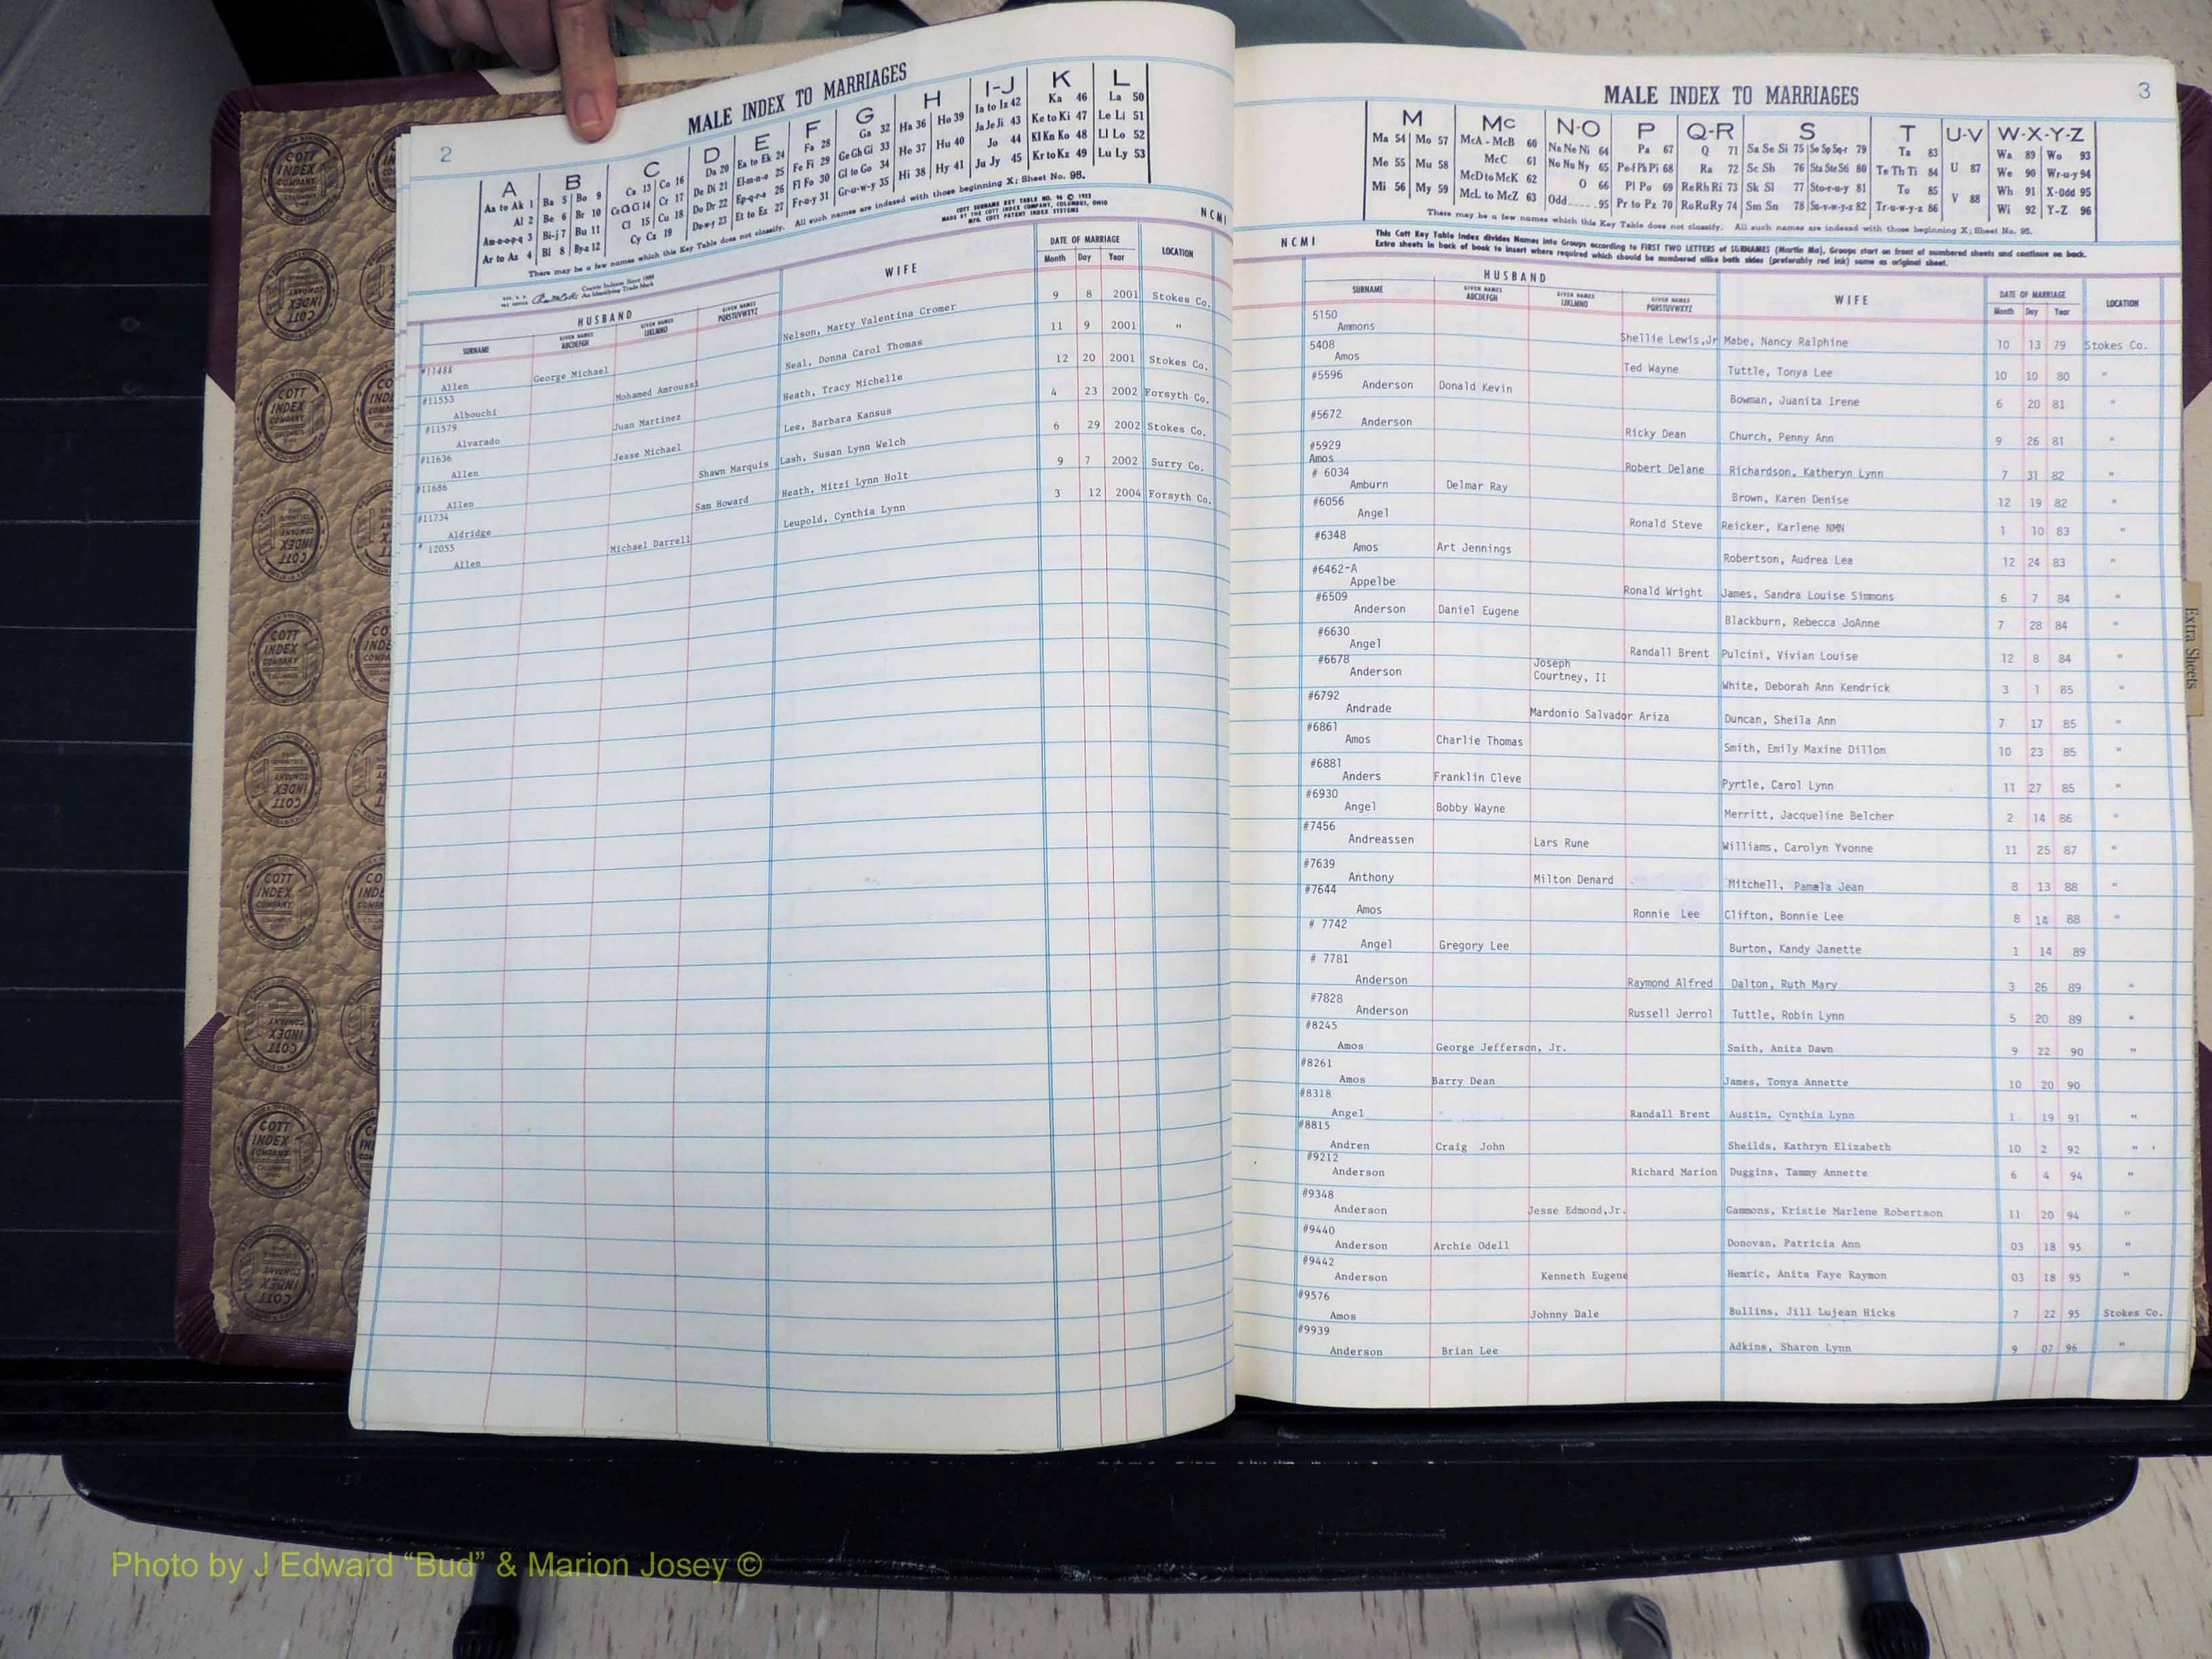 2
MALE INDEX TO MARRIAGES
A B C D E F G H I-J K L
Aa to Ak 1 Ba 5 Bo 9 Ca 13 Co 16 Da 20 Ea to Ek 24 Fa 28 Ga 32 Ha 36 Ho 39 Ia to Iz 42 Ka 46 La 50
Al 2 Be 6 Br 10 Ce Ch Ci 14 Cr 17 De Di 21 El-m-n-o 25 Fe Fi 29 Ge Gh Gi 33 He 37 Hu 40 Ja Je Ji 43 Ke to Ki 47 Le Li 51
Am-n-o-p-q 3 Bi-j 7 Bu 11 Cl 15 Cu 18 Do Dr 22 Ep-q-r-s 26 Fl Fo 30 Gl to Go 34 Hi 38 Hy 41 Jo 44 Kl Kn Ko 48 Ll Lo 52
Ar to Az 4 Bl 8 By-z 12 Cy Cz 19 Du-w-y 23 Et to Ez 27 Fr-u-y 31 Gr-u-w-y 35 Ju Jy 45 Kr to Kz 49 Lu Ly 53
There may be a few names which this Key Table does not classify. All such names are indexed with those beginning X; Sheet No. 95.
COTT SURNAME KEY TABLE NO. 96 © 1952
MADE BY THE COTT INDEX COMPANY, COLUMBUS, OHIO
MFG. COTT PATENT INDEX SYSTEMS
NCMI
County Indexes Since 1888
An Identifying Trade Mark
HUSBAND WIFE DATE OF MARRIAGE LOCATION
SURNAME GIVEN NAMES ABCDEFGH GIVEN NAMES IJKLMNO GIVEN NAMES PQRSTUVWXYZ Month Day Year
#11488
Allen George Michael Nelson, Marty Valentina Cromer 9 8 2001 Stokes Co.
#11553
Albouchi Mohamed Amroussi Neal, Donna Carol Thomas 11 9 2001 "
#11579
Alvarado Juan Martinez Heath, Tracy Michelle 12 20 2001 Stokes Co.
#11636
Allen Jesse Michael Lee, Barbara Kansus 4 23 2002 Forsyth Co.
#11686
Allen Shawn Marquis Lash, Susan Lynn Welch 6 29 2002 Stokes Co.
#11734
Aldridge Sam Howard Heath, Mitzi Lynn Holt 9 7 2002 Surry Co.
# 12055
Allen Michael Darrell Leupold, Cynthia Lynn 3 12 2004 Forsyth Co.
MALE INDEX TO MARRIAGES
3
M Mc N-O P Q-R S T U-V W-X-Y-Z
Ma 54 Mo 57 McA - McB 60 Na Ne Ni 64 Pa 67 Q 71 Sa Se Si 75 Se Sp Sq-r 79 Ta 83 Wa 89 Wo 93
Me 55 Mu 58 McC 61 No Nu Ny 65 Pe-f Ph Pi 68 Ra 72 Sc Sh 76 Sta Ste S6 80 Te Th Ti 84 U 87 We 90 Wr-u-y 94
Mi 56 My 59 McD to McK 62 O 66 Pl Po 69 Re Rh Ri 73 Sk Sl 77 Sto-r-u-y 81 To 85 V 88 Wh 91 X-Odd 95
McL to McZ 63 Odd 95 Pr to Pz 70 Ro Ru Ry 74 Sm Sn 78 Su-v-w-y-z 82 Tr-u-w-y-z 86 Wi 92 Y-Z 96
There may be a few names which this Key Table does not classify. All such names are indexed with those beginning X; Sheet No. 95.
NCMI
This Cott Key Table Index divides Names into Groups according to FIRST TWO LETTERS of SURNAMES (Martin Ma), Groups start on front of numbered sheets and continue on back.
Extra sheets in back of book to insert where required which should be numbered alike both sides (preferably red ink) same as original sheet.
HUSBAND WIFE DATE OF MARRIAGE LOCATION
SURNAME GIVEN NAMES ABCDEFGH GIVEN NAMES IJKLMNO GIVEN NAMES PQRSTUVWXYZ Month Day Year
5150
Ammons Shellie Lewis,Jr Mabe, Nancy Ralphine 10 13 79 Stokes Co.
5408
Amos Ted Wayne Tuttle, Tonya Lee 10 10 80 "
#5596
Anderson Donald Kevin Bowman, Juanita Irene 6 20 81 "
#5672
Anderson Ricky Dean Church, Penny Ann 9 26 81 "
#5929
Amos Robert Delane Richardson, Katheryn Lynn 7 31 82 "
# 6034
Amburn Delmar Ray Brown, Karen Denise 12 19 82 "
#6056
Angel Ronald Steve Reicker, Karlene NMN 1 10 83 "
#6348
Amos Art Jennings Robertson, Audrea Lea 12 24 83 "
#6462-A
Appelbe Ronald Wright James, Sandra Louise Simmons 6 7 84 "
#6509
Anderson Daniel Eugene Blackburn, Rebecca JoAnne 7 28 84 "
#6630
Angel Randall Brent Pulcini, Vivian Louise 12 8 84 "
#6678
Anderson Joseph Courtney, II White, Deborah Ann Kendrick 3 1 85 "
#6792
Andrade Mardonio Salvador Ariza Duncan, Sheila Ann 7 17 85 "
#6861
Amos Charlie Thomas Smith, Emily Maxine Dillon 10 23 85 "
#6881
Anders Franklin Cleve Pyrtle, Carol Lynn 11 27 85 "
#6930
Angel Bobby Wayne Merritt, Jacqueline Belcher 2 14 86 "
#7456
Andreassen Lars Rune Williams, Carolyn Yvonne 11 25 87 "
#7639
Anthony Milton Denard Mitchell, Pamela Jean 8 13 88 "
#7644
Amos Ronnie Lee Clifton, Bonnie Lee 8 14 88 "
# 7742
Angel Gregory Lee Burton, Kandy Janette 1 14 89
# 7781
Anderson Raymond Alfred Dalton, Ruth Mary 3 26 89 "
#7828
Anderson Russell Jerrol Tuttle, Robin Lynn 5 20 89 "
#8245
Amos George Jefferson, Jr. Smith, Anita Dawn 9 22 90 "
#8261
Amos Barry Dean James, Tonya Annette 10 20 90
#8318
Angel Randall Brent Austin, Cynthia Lynn 1 19 91 "
#8815
Andren Craig John Sheilds, Kathryn Elizabeth 10 2 92 "
#9212
Anderson Richard Marion Duggins, Tammy Annette 6 4 94 "
#9348
Anderson Jesse Edmond,Jr. Gammons, Kristie Marlene Robertson 11 20 94 "
#9440
Anderson Archie Odell Donovan, Patricia Ann 03 18 95 "
#9442
Anderson Kenneth Eugene Hemric, Anita Faye Raymon 03 18 95 "
#9576
Amos Johnny Dale Bullins, Jill Lujean Hicks 7 22 95 Stokes Co.
#9939
Anderson Brian Lee Adkins, Sharon Lynn 9 07 96 "
Extra Sheets
COTT INDEX COMPANY
Photo by J Edward "Bud" & Marion Josey ©